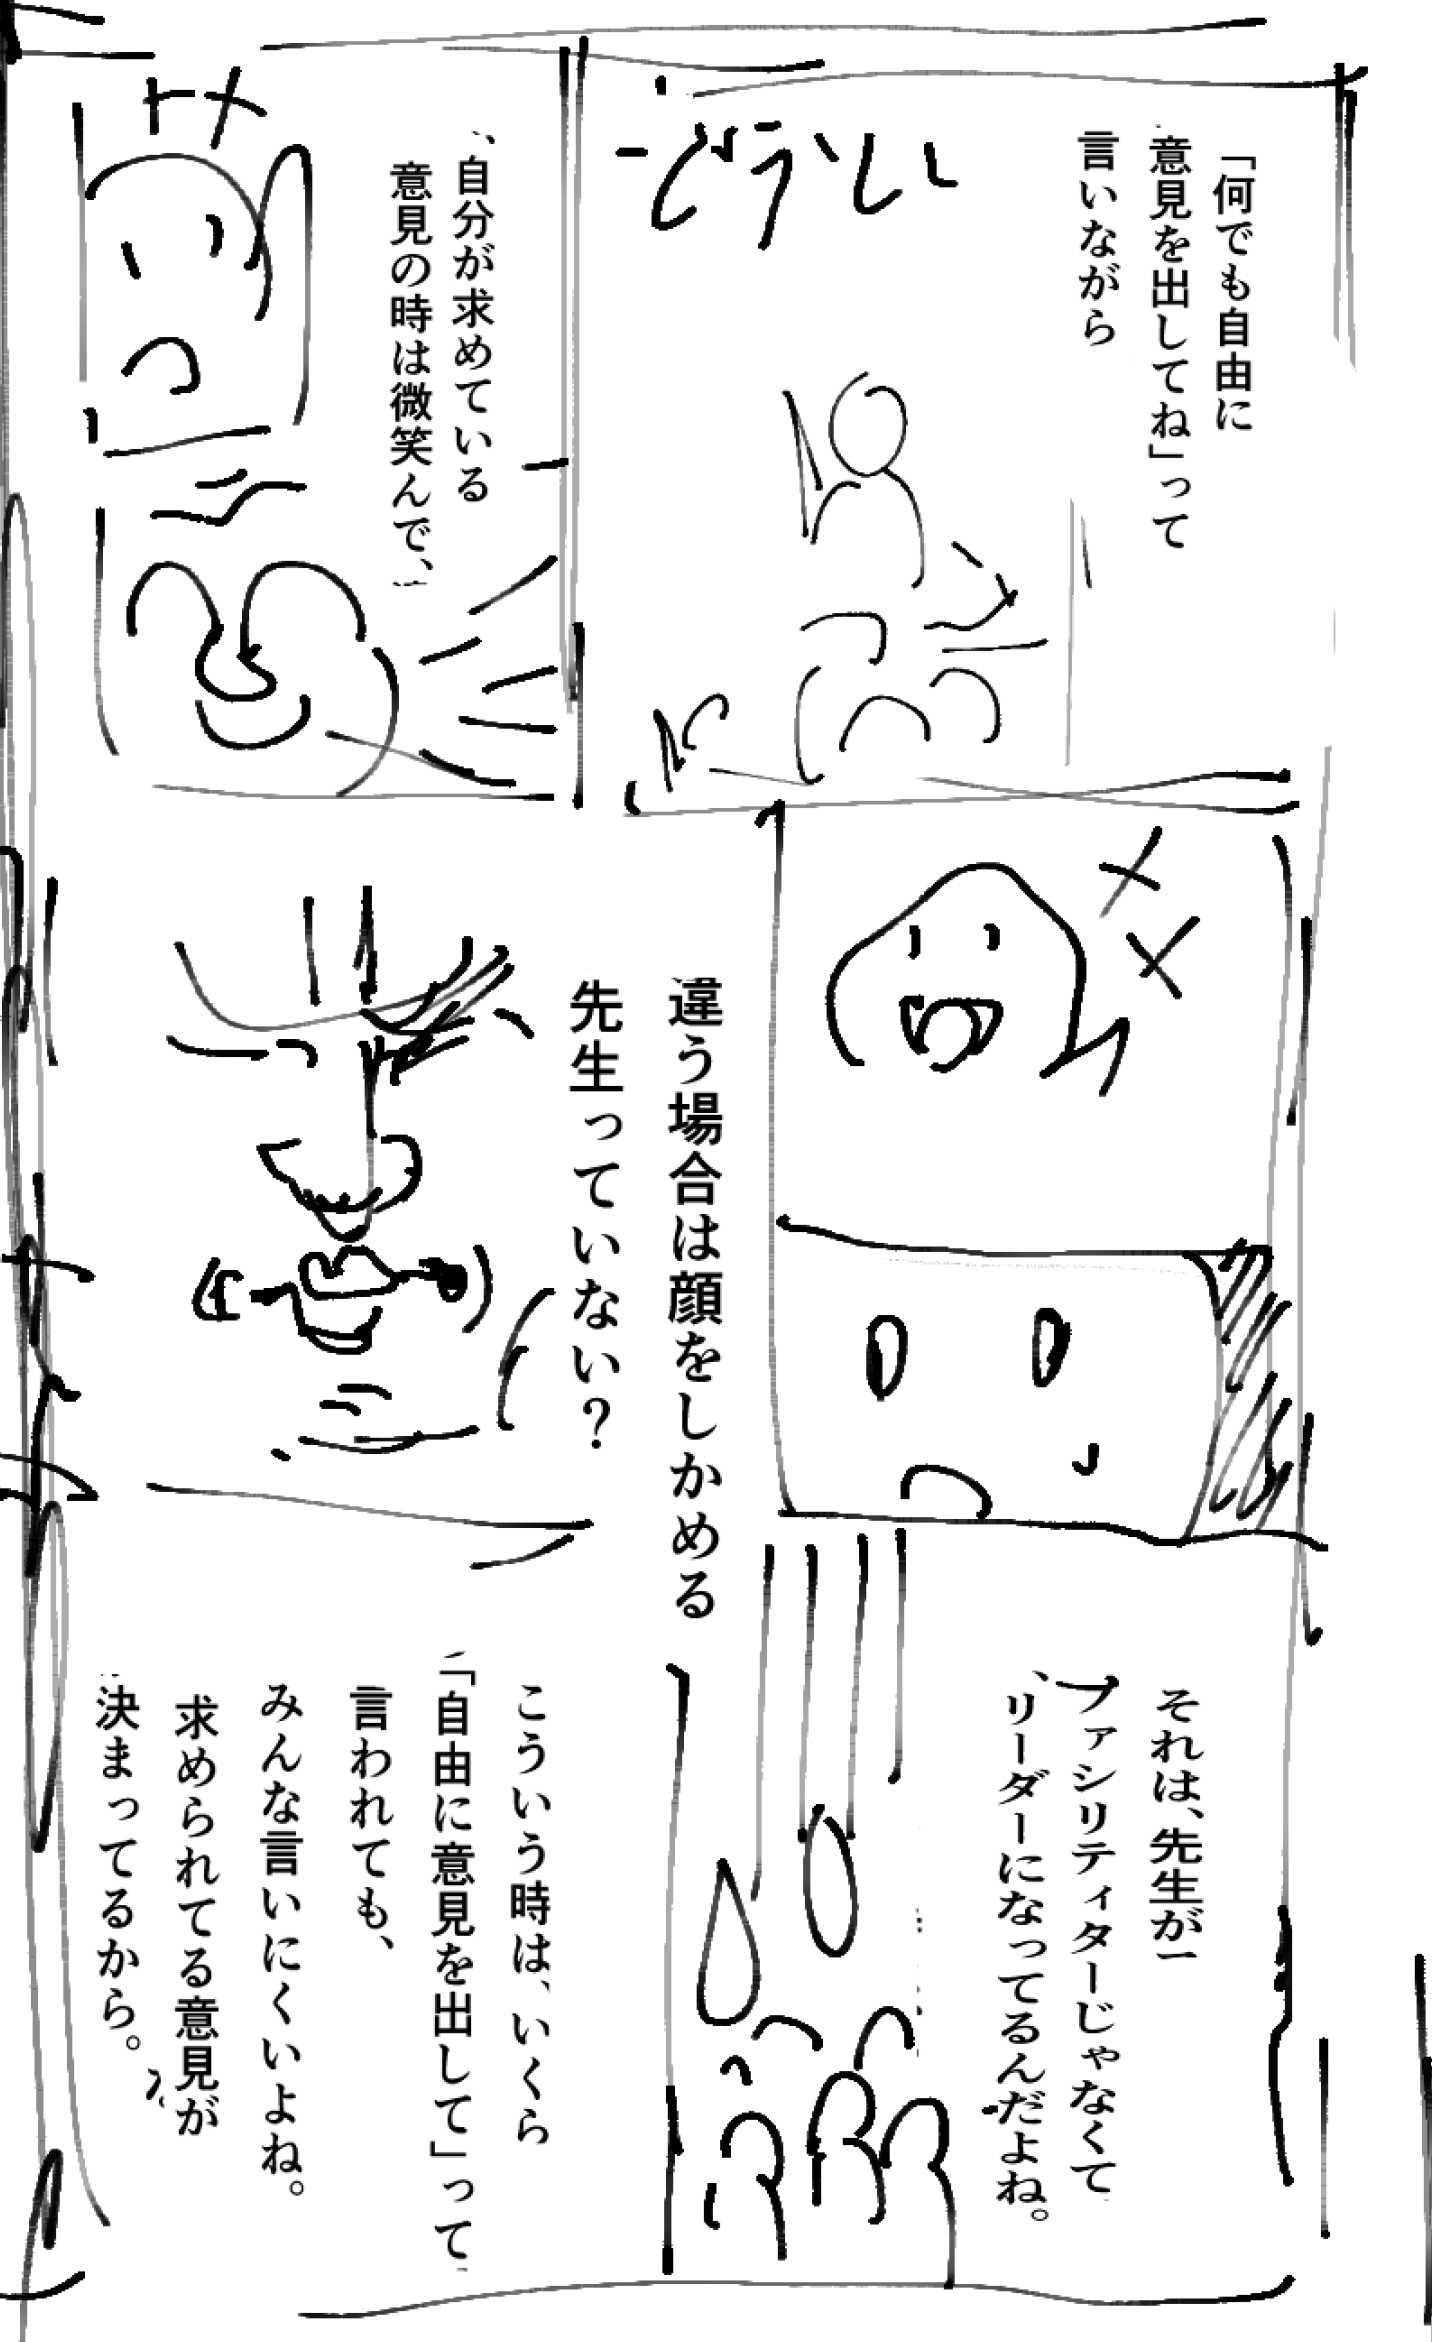 「何でも自由に
意見を出してね」って
言いながら
どうしし
自分が求めている
意見の時は微笑んで、
違う場合は顔をしかめる
先生っていない?
それは、先生が
ファシリティターじゃなくて
リーダーになってるんだよね。
こういう時は、いくら
「自由に意見を出して」って
言われても、
みんな言いにくいよね。
求められてる意見が
決まってるから。